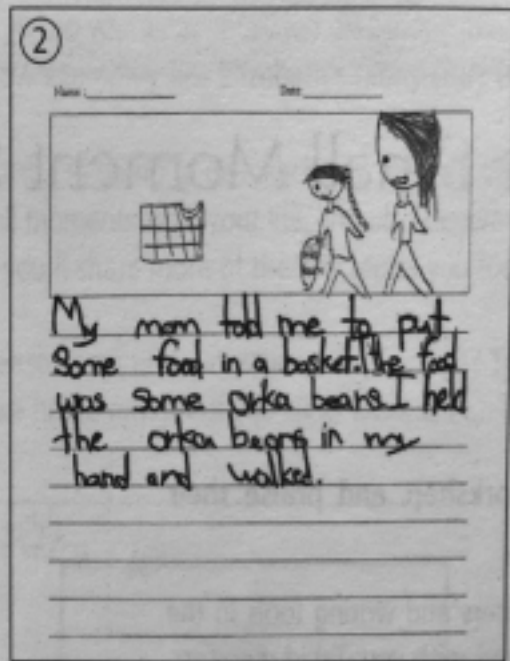 2
Name: Date
My mom told me to put
Some food in a basket. The food
was some orka beans. I held
the orka beans in my
hand and walked.